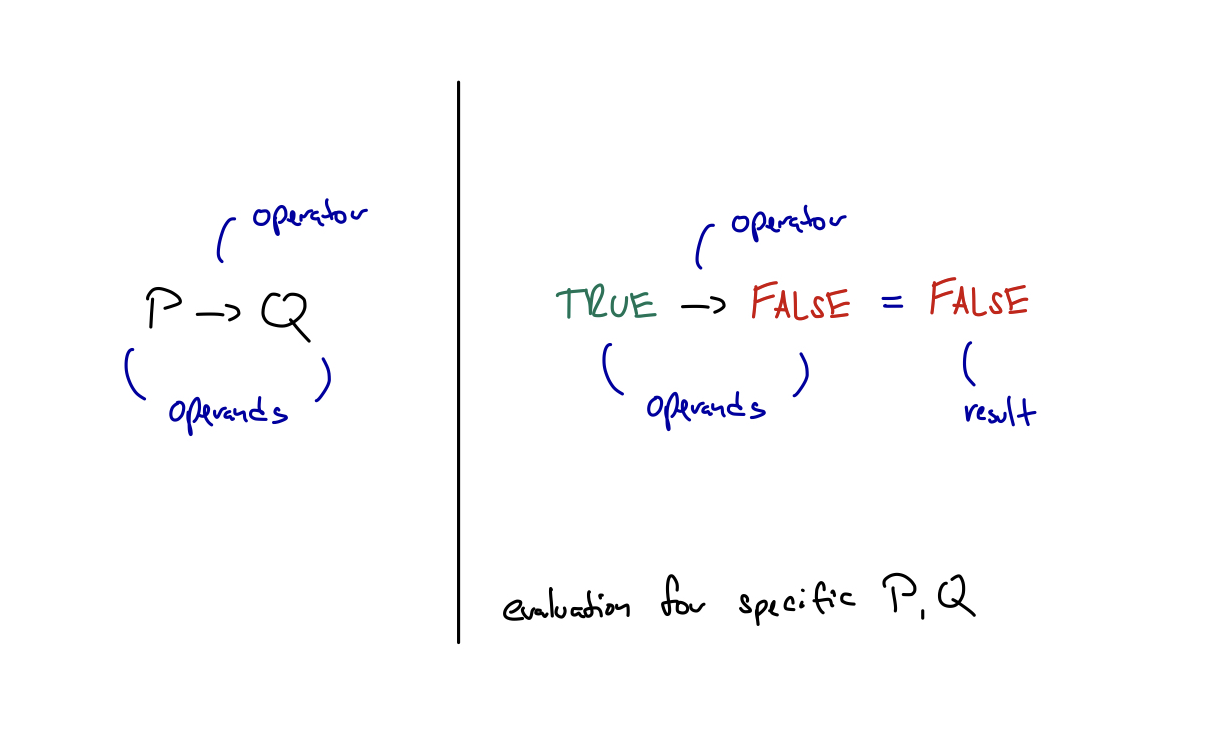 operator
P → Q
operands
operator
TRUE → FALSE = FALSE
operands
result
evaluation for specific P, Q